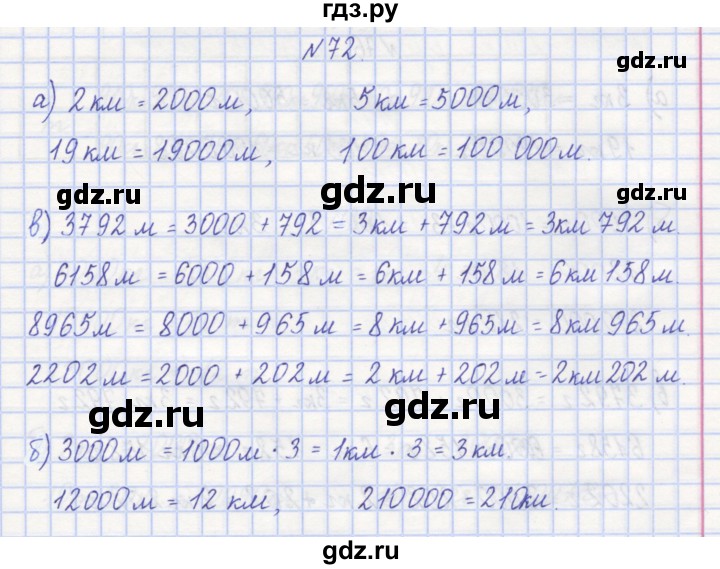 гдз.ру
N 72
gdz.ru
а) 2 км = 2000 м, 5 км = 5000 м,
19 км = 19000 м, 100 км = 100 000 м.
gdz.ru gdz.ru gdz.ru
в) 3792 м = 3000 + 792 = 3 км + 792 м = 3 км 792 м.
6158 м = 6000 + 158 м = 6 км + 158 м = 6 км 158 м.
8965 м = 8000 + 965 м = 8 км + 965 м = 8 км 965 м.
2202 м = 2000 + 202 м = 2 км + 202 м = 2 км 202 м.
gdz.ru gdz.ru
б) 3000 м = 1000 м · 3 = 1 км · 3 = 3 км.
gdz.ru
12000 м = 12 км, 210000 = 210 км.
gdz.ru